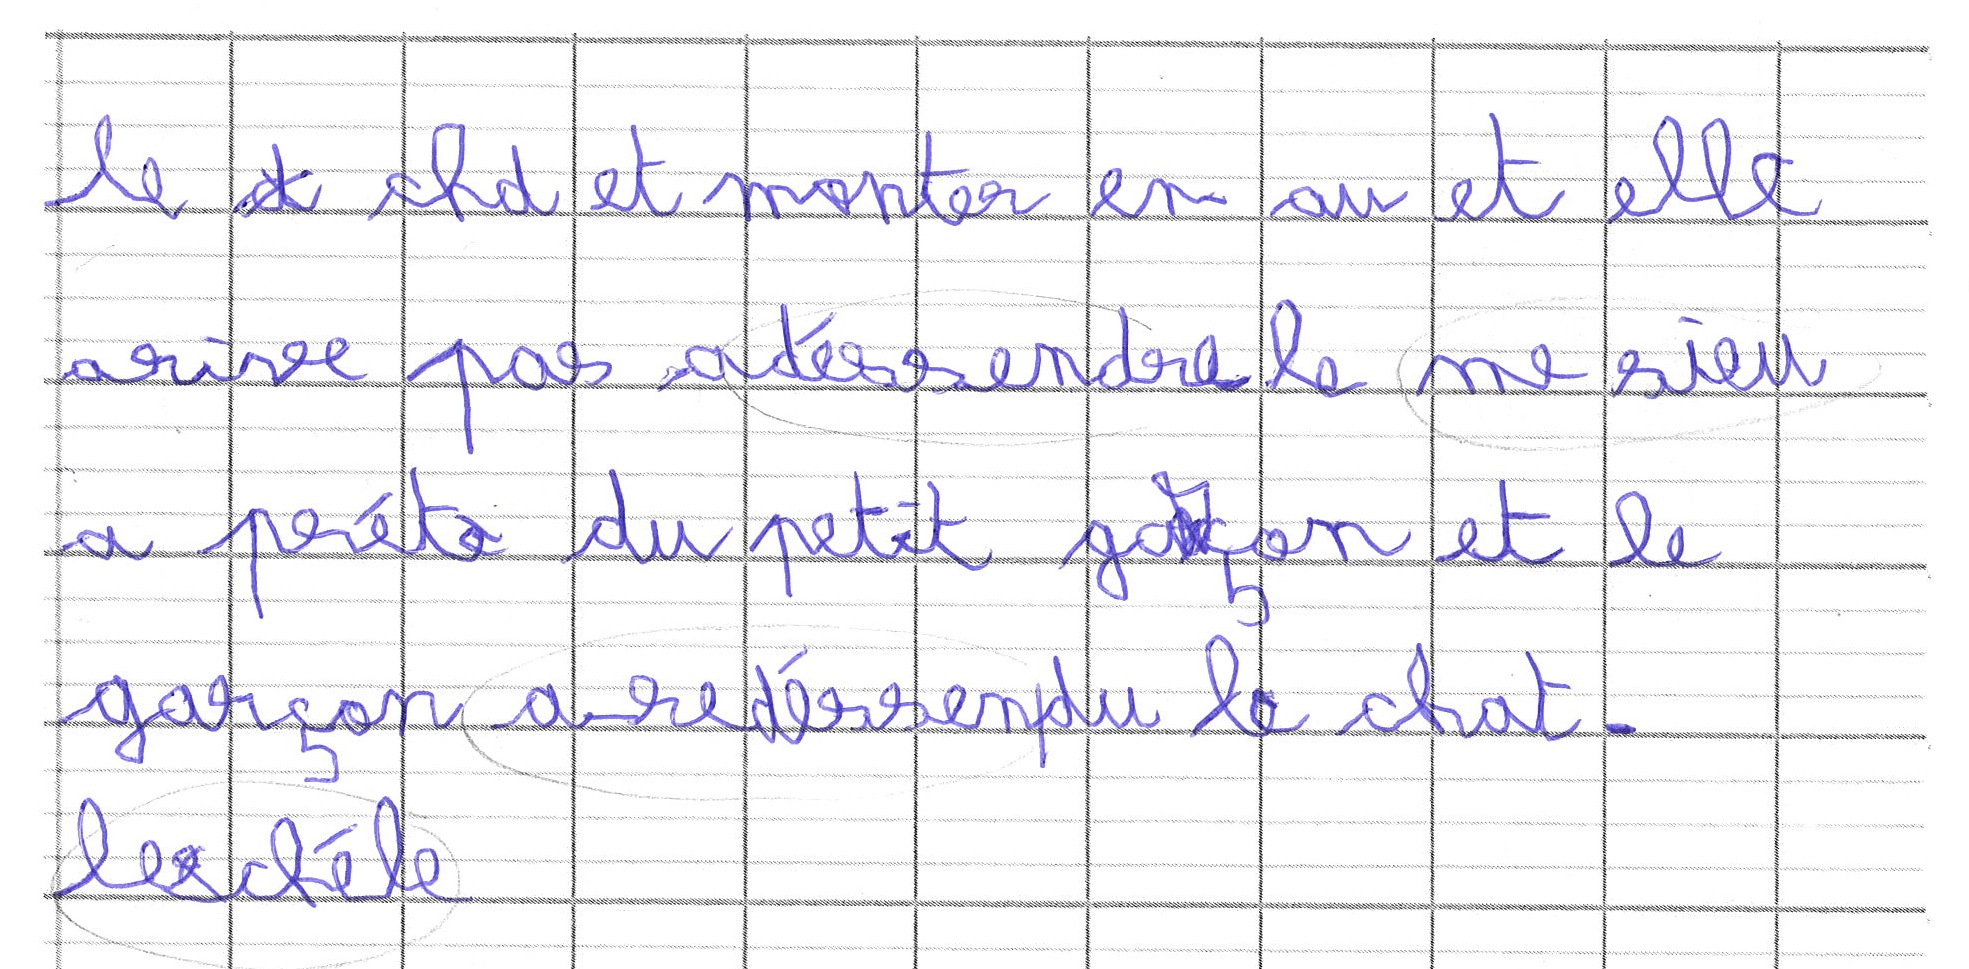 le chd et monter en au et elle
arive pas adéssendre le me sieu
a peréta du petit garçon et le
garçon a redéssendu le chat.
leschéle